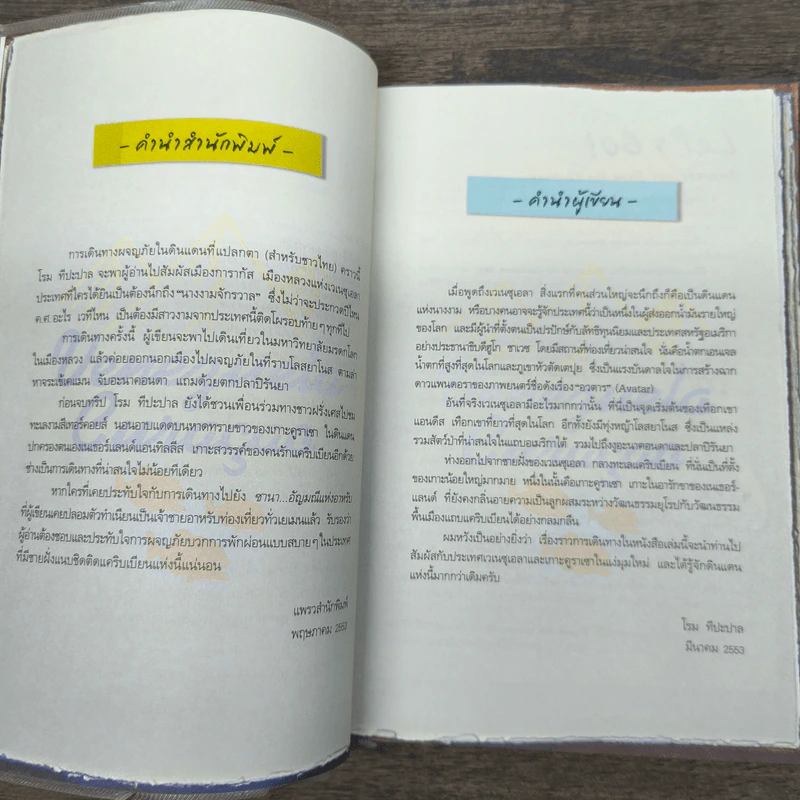 - คำนำสำนักพิมพ์ -
การเดินทางผจญภัยในดินแดนที่แปลกตา (สำหรับชาวไทย) คราวนี้
โรม ทีปะปาล จะพาผู้อ่านไปสัมผัสเมืองการากัส เมืองหลวงแห่งเวเนซุเอลา
ประเทศที่ใครได้ยินเป็นต้องนึกถึง "นางงามจักรวาล" ซึ่งไม่ว่าจะประกวดปีไหน
ค.ศ.อะไร เวทีไหน เป็นต้องมีสาวงามจากประเทศนี้ติดโผรอบท้ายๆ ทุกทีไป
การเดินทางครั้งนี้ ผู้เขียนจะพาไปเดินเที่ยวในมหาวิทยาลัยมรดกโลก
ในเมืองหลวง แล้วค่อยออกนอกเมืองไปผจญภัยในที่ราบโลสยาโนส ตามล่า
หาจระเข้เคแมน จับอะนาคอนดา แถมด้วยตกปลาปิรันยา
ก่อนจบทริป โรม ทีปะปาล ยังได้ชวนเพื่อนร่วมทางชาวฝรั่งเศสไปชม
ทะเลงามสีเทอร์คอยส์ นอนอาบแดดบนหาดทรายขาวของเกาะคูราเซา ในดินแดน
ปกครองตนเองเนเธอร์แลนด์แอนทิลลีส เกาะสวรรค์ของคนรักแคริบเบียนอีกด้วย
ช่างเป็นการเดินทางที่น่าสนใจไม่น้อยทีเดียว
หากใครที่เคยประทับใจกับการเดินทางไปยัง ซานา...อัญมณีแห่งอาหรับ
ที่ผู้เขียนเคยปลอมตัวทำเนียนเป็นเจ้าชายอาหรับท่องเที่ยวทั่วเยเมนแล้ว รับรองว่า
ผู้อ่านต้องชอบและประทับใจการผจญภัยบวกการพักผ่อนแบบสบายๆ ในประเทศ
ที่มีชายฝั่งแนบชิดติดแคริบเบียนแห่งนี้แน่นอน
แพรวสำนักพิมพ์
พฤษภาคม 2553
- คำนำผู้เขียน -
เมื่อพูดถึงเวเนซุเอลา สิ่งแรกที่คนส่วนใหญ่จะนึกถึงก็คือเป็นดินแดน
แห่งนางงาม หรือบางคนอาจจะรู้จักประเทศนี้ว่าเป็นหนึ่งในผู้ส่งออกน้ำมันรายใหญ่
ของโลก และมีผู้นำที่ตั้งตนเป็นปรปักษ์กับลัทธิทุนนิยมและประเทศสหรัฐอเมริกา
อย่างประธานาธิบดีฮูโก ชาเวซ โดยมีสถานที่ท่องเที่ยวน่าสนใจ นั่นคือน้ำตกเอนเจล
น้ำตกที่สูงที่สุดในโลกและภูเขาหัวตัดเตปุย ซึ่งเป็นแรงบันดาลใจในการสร้างฉาก
ดาวแพนดอราของภาพยนตร์ชื่อดังเรื่อง "อวตาร" (Avatar)
อันที่จริงเวเนซุเอลามีอะไรมากกว่านั้น ที่นี่เป็นจุดเริ่มต้นของเทือกเขา
แอนดีส เทือกเขาที่ยาวที่สุดในโลก อีกทั้งยังมีทุ่งหญ้าโลสยาโนส ซึ่งเป็นแหล่ง
รวมสัตว์ป่าที่น่าสนใจในแถบอเมริกาใต้ รวมไปถึงงูอะนาคอนดาและปลาปิรันยา
ห่างออกไปจากชายฝั่งของเวเนซุเอลา กลางทะเลแคริบเบียน ที่นั่นเป็นที่ตั้ง
ของเกาะน้อยใหญ่มากมาย หนึ่งในนั้นคือเกาะคูราเซา เกาะในอารักขาของเนเธอร์-
แลนด์ ที่ยังคงกลิ่นอายความเป็นลูกผสมระหว่างวัฒนธรรมยุโรปกับวัฒนธรรม
พื้นเมืองแถบแคริบเบียนได้อย่างกลมกลืน
ผมหวังเป็นอย่างยิ่งว่า เรื่องราวการเดินทางในหนังสือเล่มนี้จะนำท่านไป
สัมผัสกับประเทศเวเนซุเอลาและเกาะคูราเซาในแง่มุมใหม่ และได้รู้จักดินแดน
แห่งนี้มากกว่าเดิมครับ
โรม ทีปะปาล
มีนาคม 2553